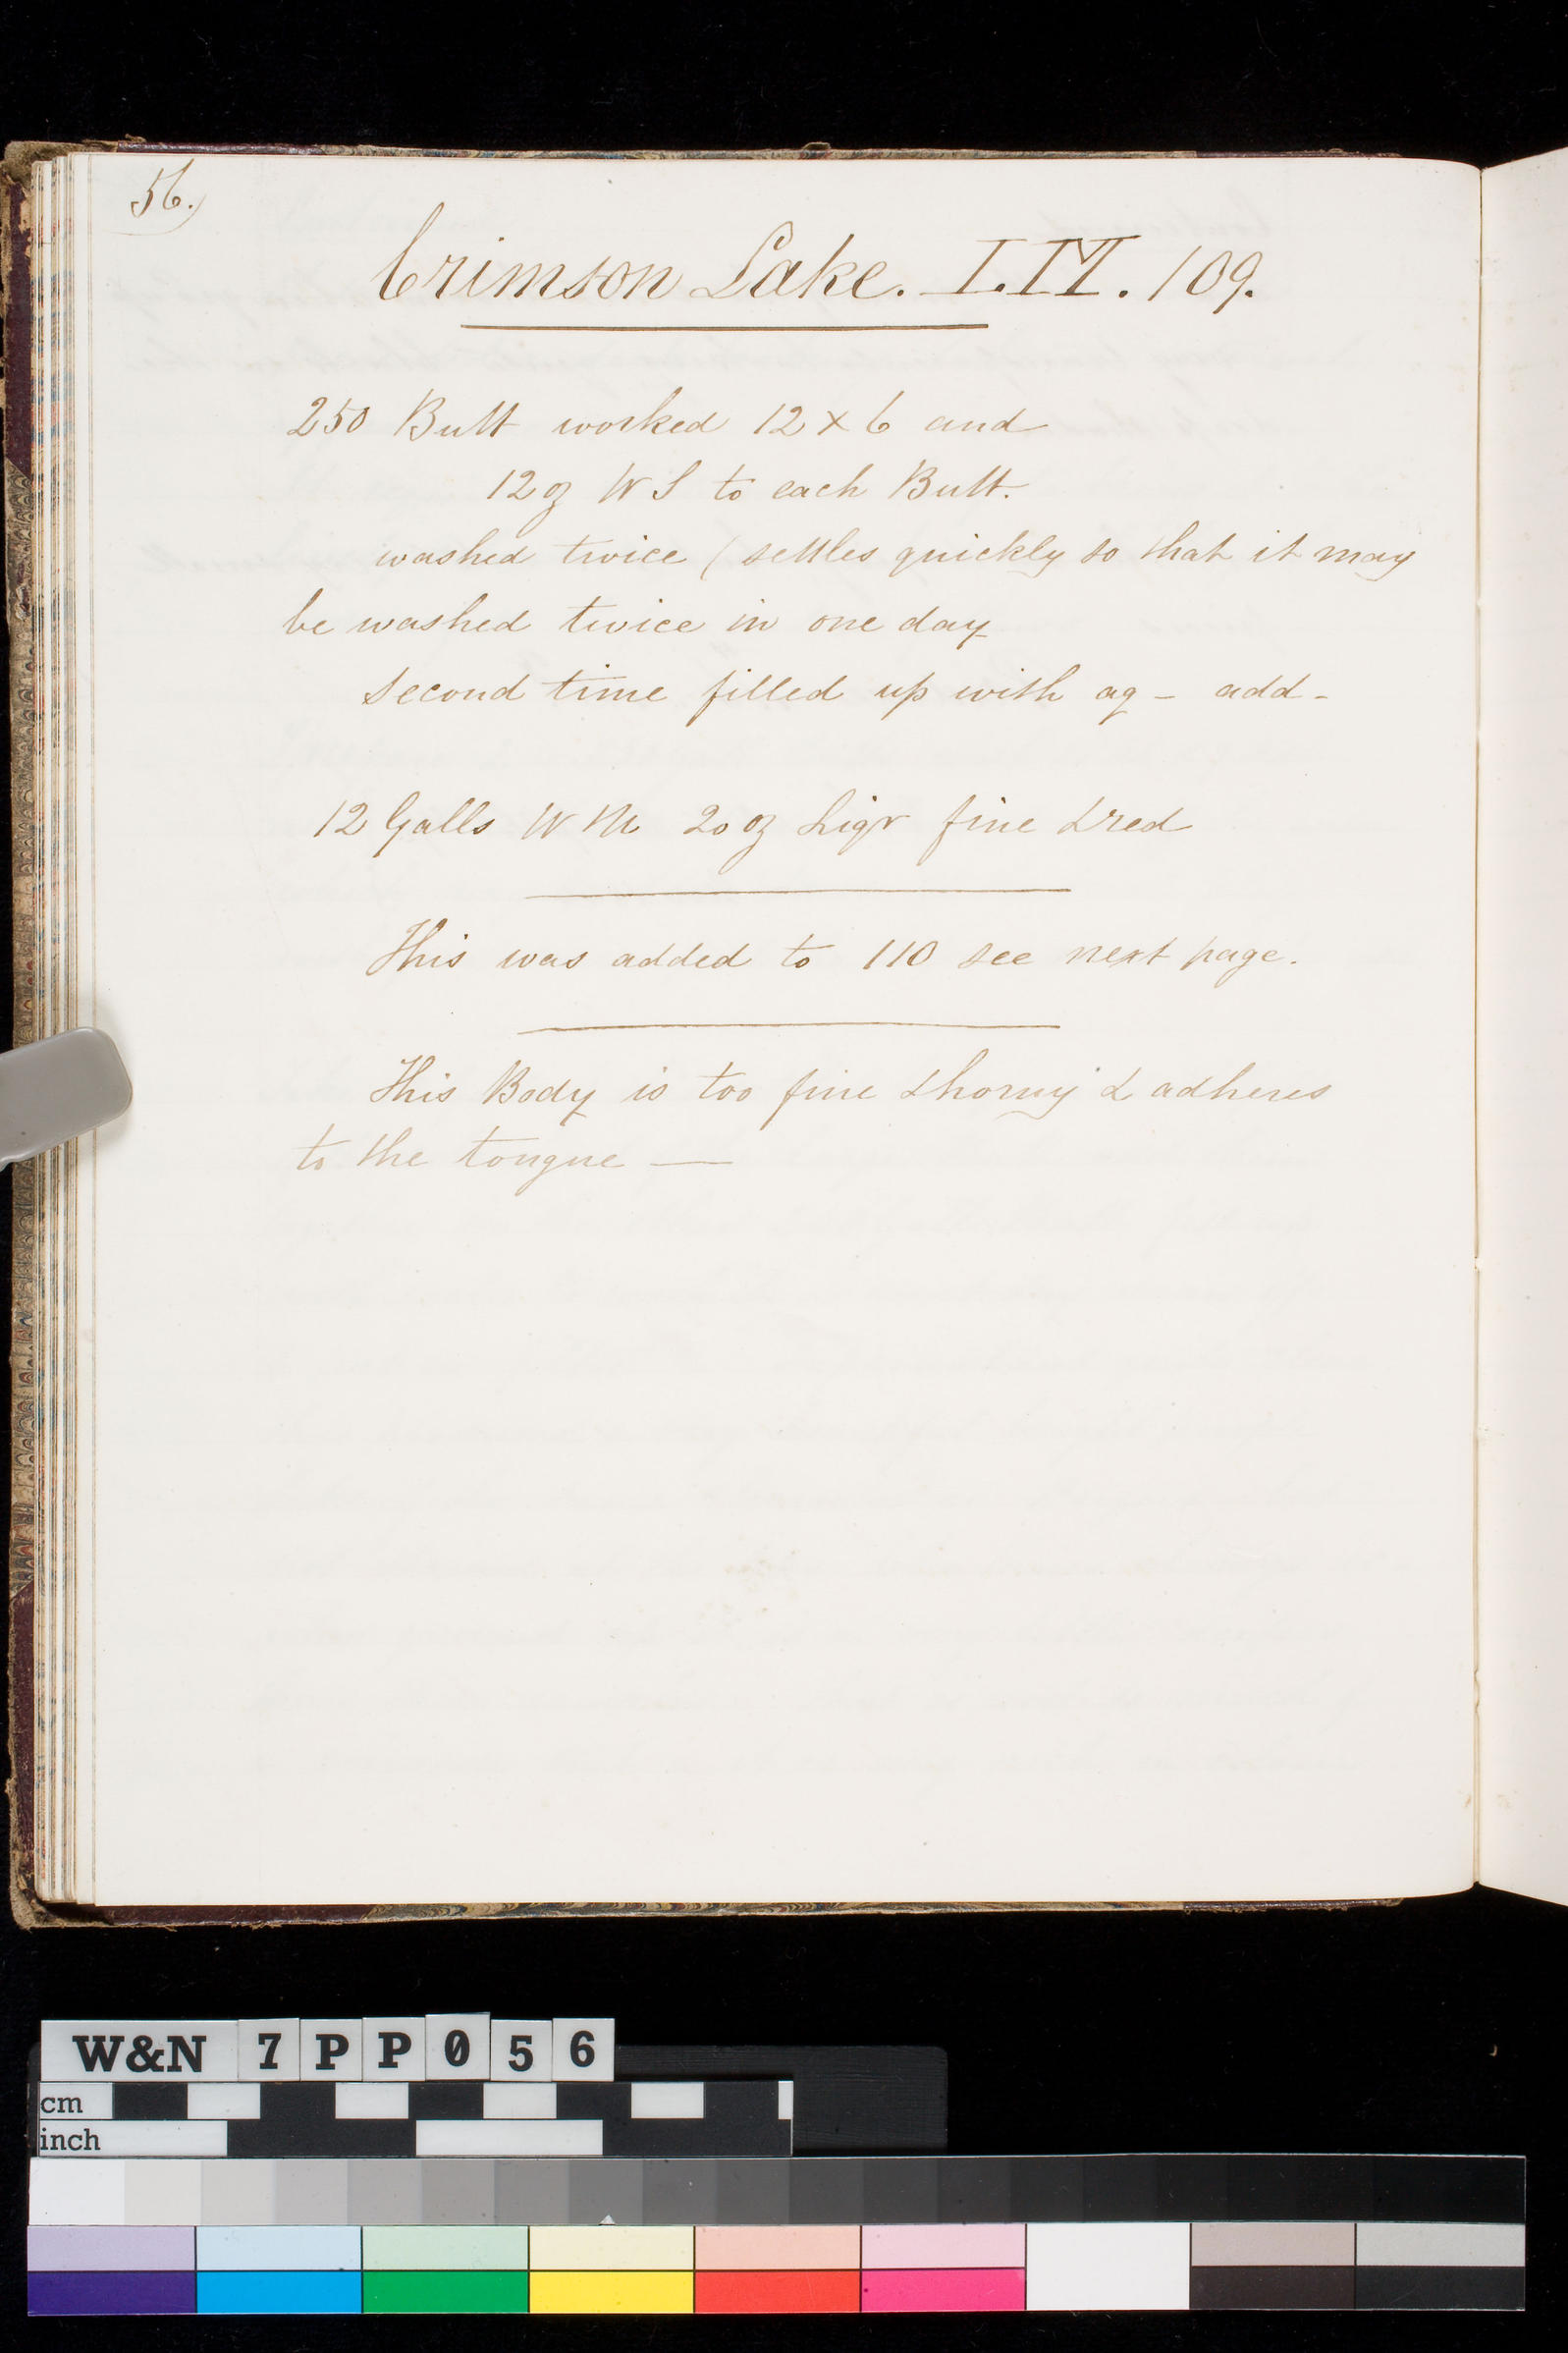 56.
Crimson Lake. I.IVI. 109.
250 Butt worked 12 x 6 and
12 oz W S to each Butt.
washed twice (settles quickly so that it may
be washed twice in one day
second time filled up with aq - add -
12 Galls W M 20 oz Liqr fine & red
This was added to 110 see next page.
This Body is too fine & horny & adheres
to the tongue —
W&N 7 P P 0 5 6
cm
inch